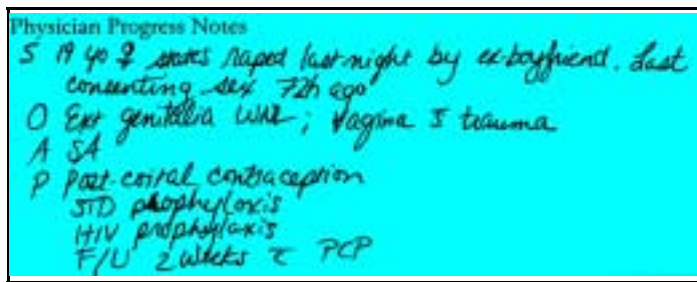 Physician Progress Notes
S 19 yo ♀ states raped last night by ex-boyfriend. Last
consenting sex 72h ago
O Ext genitalia WNL; vagina s̄ trauma
A SA
P Post-coital contraception
STD prophylaxis
HIV prophylaxis
F/U 2 weeks c̄ PCP